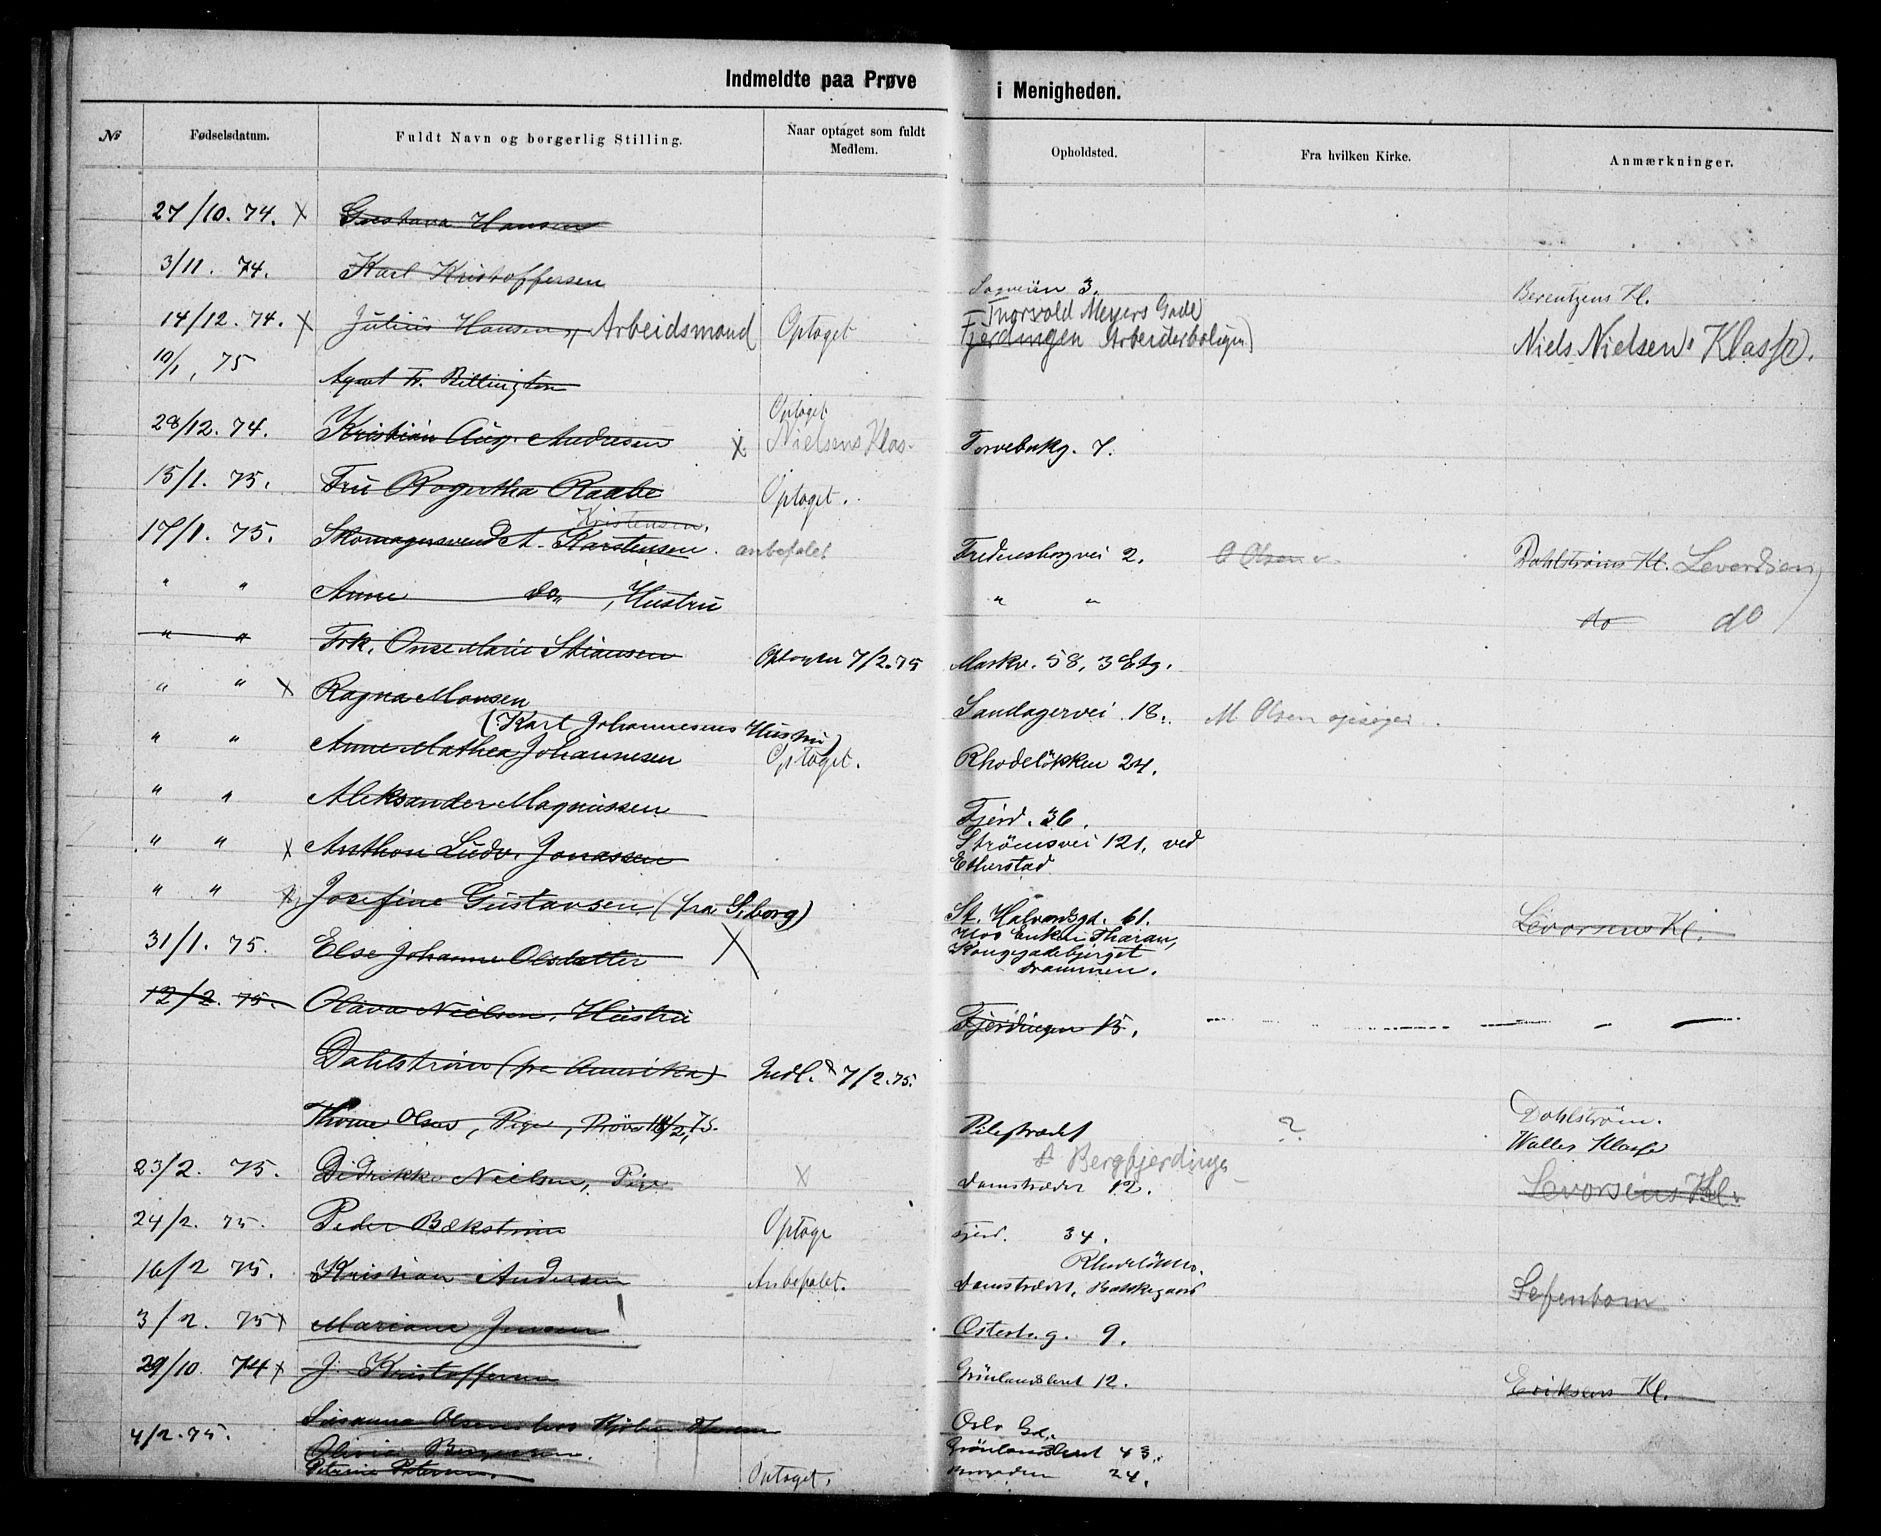 Indmeldte paa Prøve i Menigheden.
№ Fødselsdatum. Fuldt Navn og borgerlig Stilling. Naar optaget som fuldt Medlem. Opholdsted. Fra hvilken Kirke. Anmærkninger.
27/10. 74. x Gustava Hansen
3/11. 74. Karl Kristoffersen Sagveien 3. Berentzens Kl.
Thorvold Meyers Gade
14/12. 74. x Julius Hansen, Arbeidsmand Optaget Fjerdingen Arbeiderboliger) Niels Nielsens Klasse.
10/1, 75 Agnet Fr. Billington
Optaget
28/12. 74. Kristian Aug. Andresen x Nielsens Klas- Torvebakg. 7.
15/1. 75. Fru Rogertha Raabe Optaget.
Kristensen.
17/1. 75. Skomagersvend A. Karstensen. anbefalet Fredensborgvei 2. O Olsen Dahlstrøms Kl. Leverdsen
" " Anne do , Hustru " " do do
" " Frk. Onse Marie Stiansen Optagen 7/2. 75 Markv. 58, 3 Etg.
" " x Ragna Monsen Sandagervei 18. M Olsen
(Karl Johannesens Hustru)
" " Anne Mathea Johannesen Optaget. Rhodeløkken 24.
" " Aleksander Magnussen Fjerd. 36.
" " x Anthon Ludv. Jonassen Strömsvei 121, ved
Etterstad
" " x Josefine Gustavsen (fra S.borg) St. Halvardsgd. 61. Levorsens Kl.
Hos Enken Tharan,
31/1. 75. Else Johanne Olsdatter X Kongsgadebjerget
Drammen.
12/2. 75. Olava Nielsen, Hustru Fjerdingen 15.
Dahlstrøm (fra Amerika) Indl. 7/2. 75.
Thrine Olsen, Pige, Prøve 18/2, 75. Pilestrædet ? Dahlstrøm.
Walles Klasse
Bergfjerdings
23/2. 75. Didrikke Nielsen, Pige x Damstrædet 12. Levorsens Kl.
24/2. 75. Peder Bækstrøm Optage Fjerd. 34.
Rhodeløkken.
16/2 75. Kristian Andersen Anbefalet. Damstrædet, Bakkegaard Sefenbom
3/2. 75 x Mariane Jensen Østerh. g. 9.
29/10. 74 x J. Kristoffersen Grönlandsleret 12. Eriksens Kl.
Susanna Olsen hos Oslo Gd.
4/2. 75. Olivia Grönlandsleret 43.
Petrine Petersen. Optaget. 24.